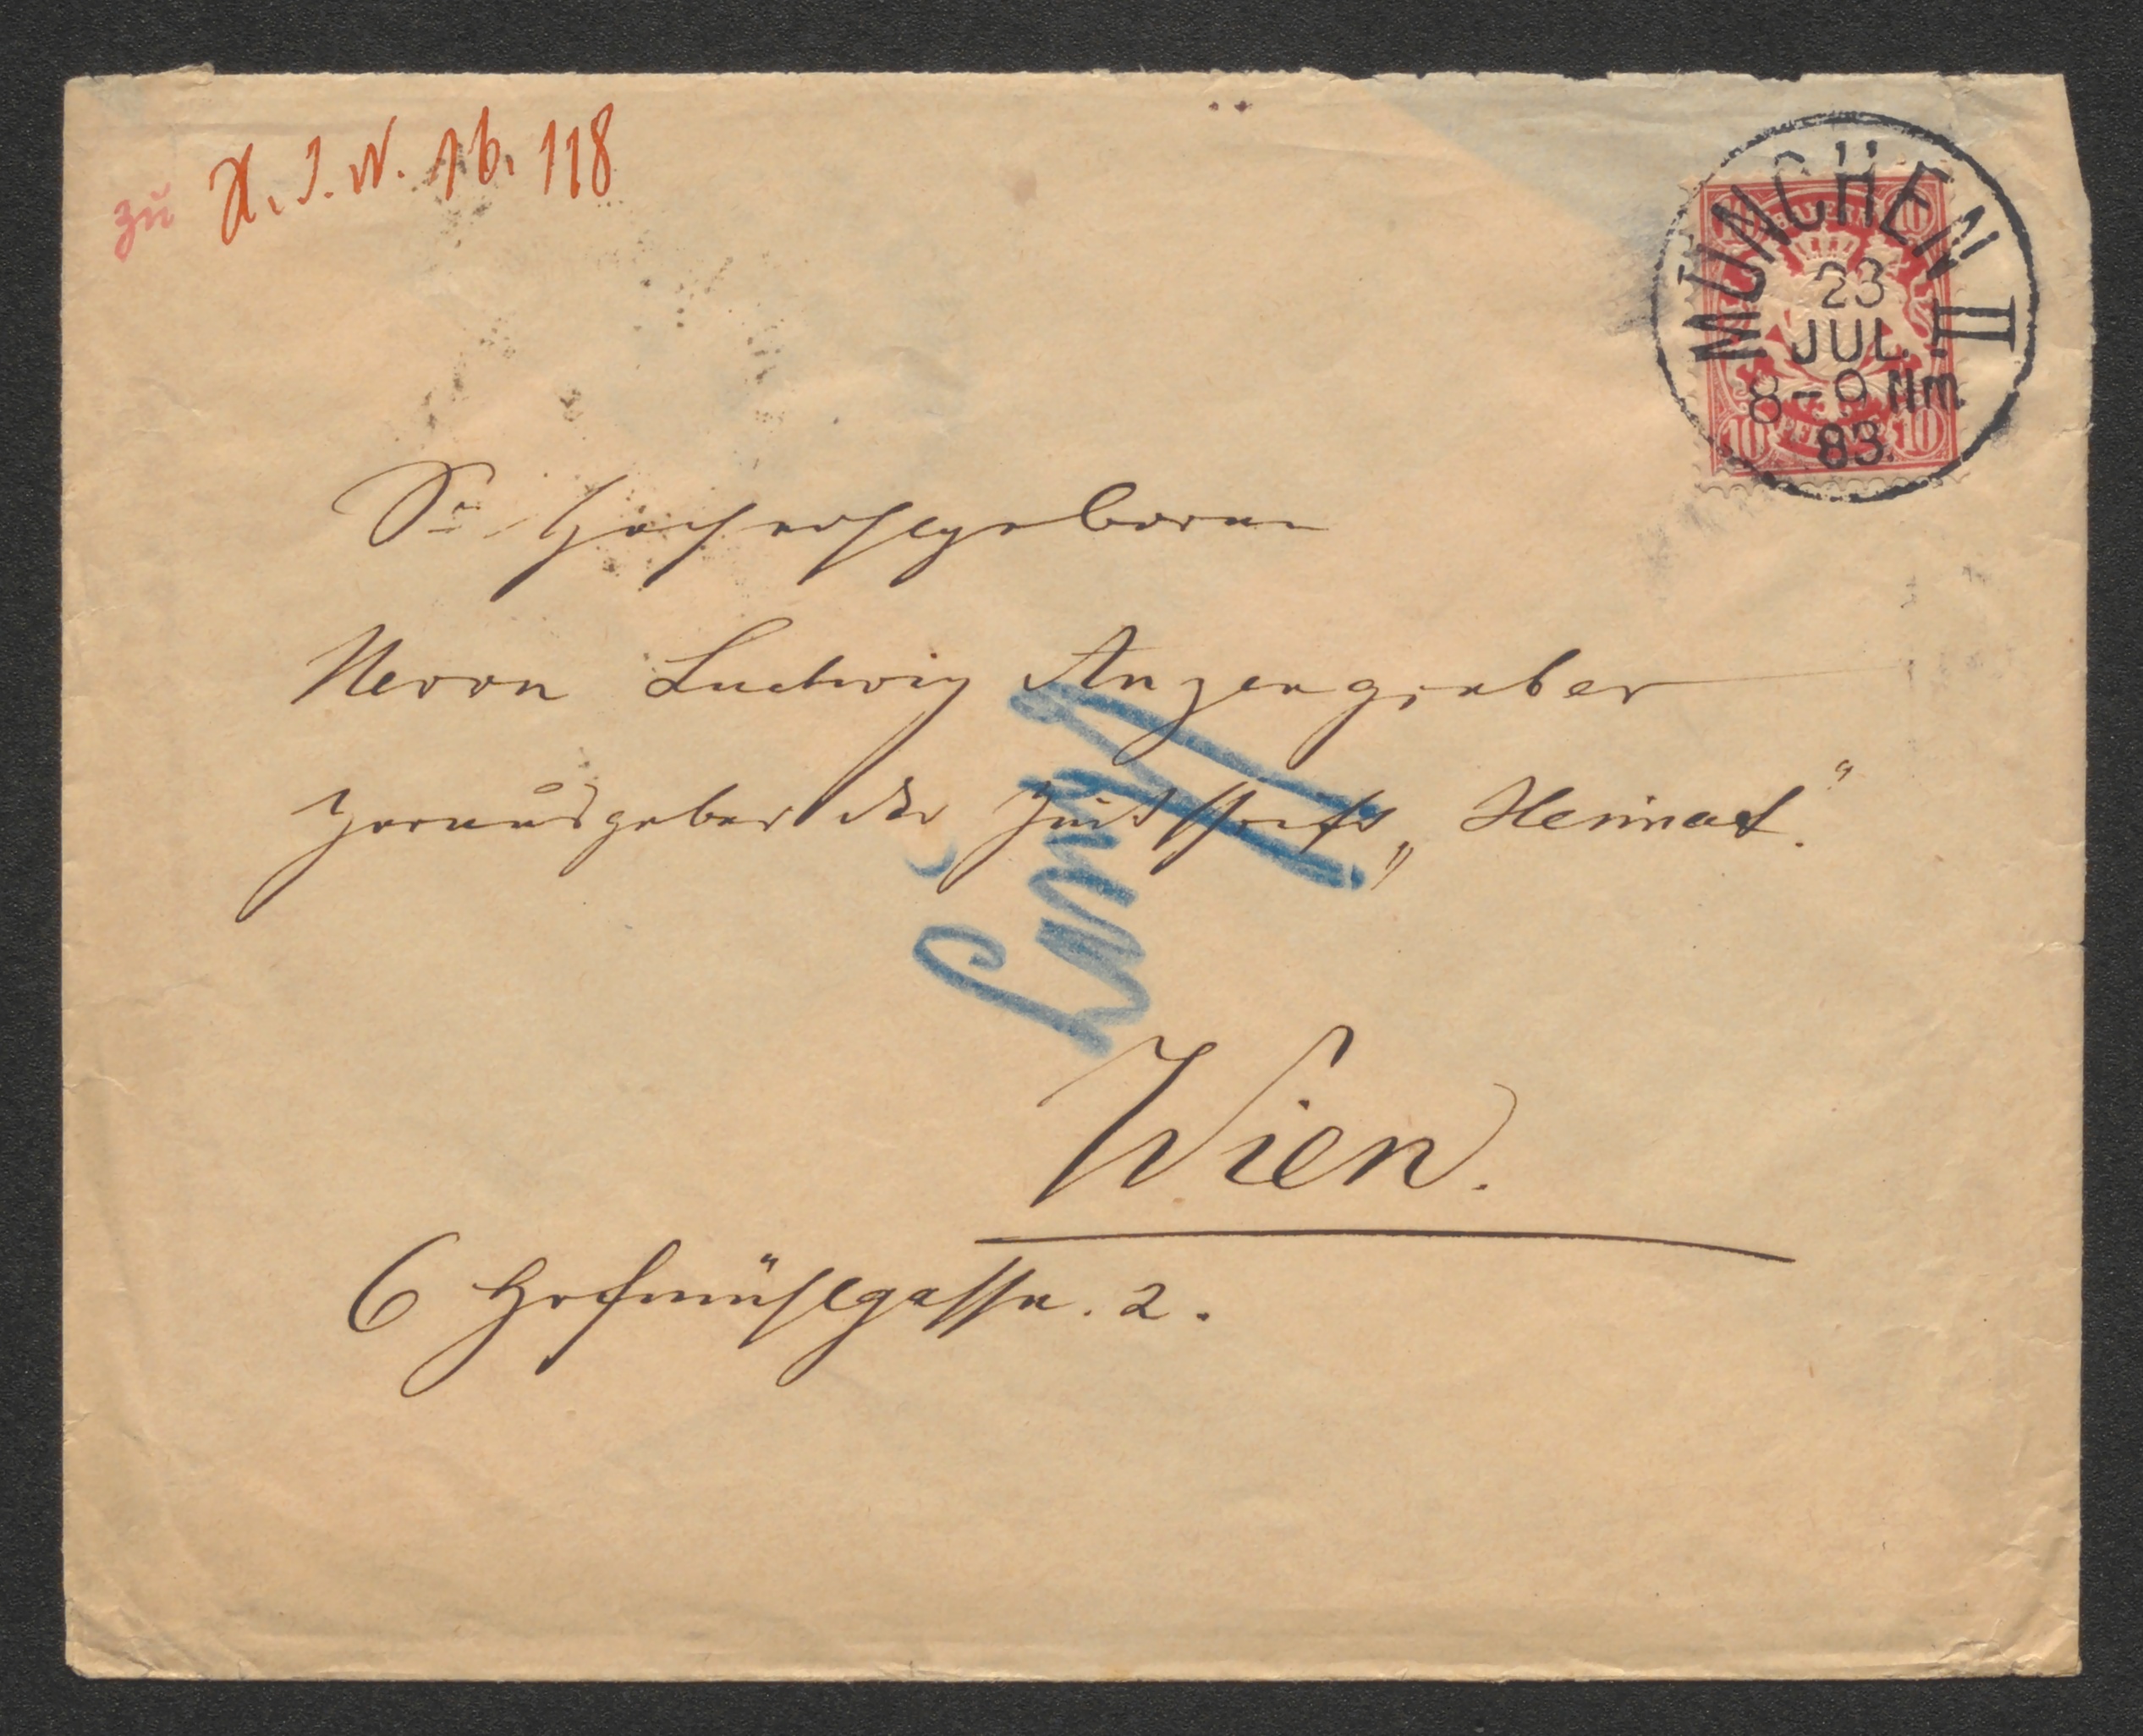 zu H. I. N. 16.118
MÜNCHEN II
23
JUL.
8-9 Nm.
83.
BAYERN
10 10
10 PFENNIG 10
Sr Hochwohlgeboren
Herrn Ludwig Anzengruber
Herausgeber der Zeitschrift „Heimat."
Wien.
6 Hofmühlgasse. 2.